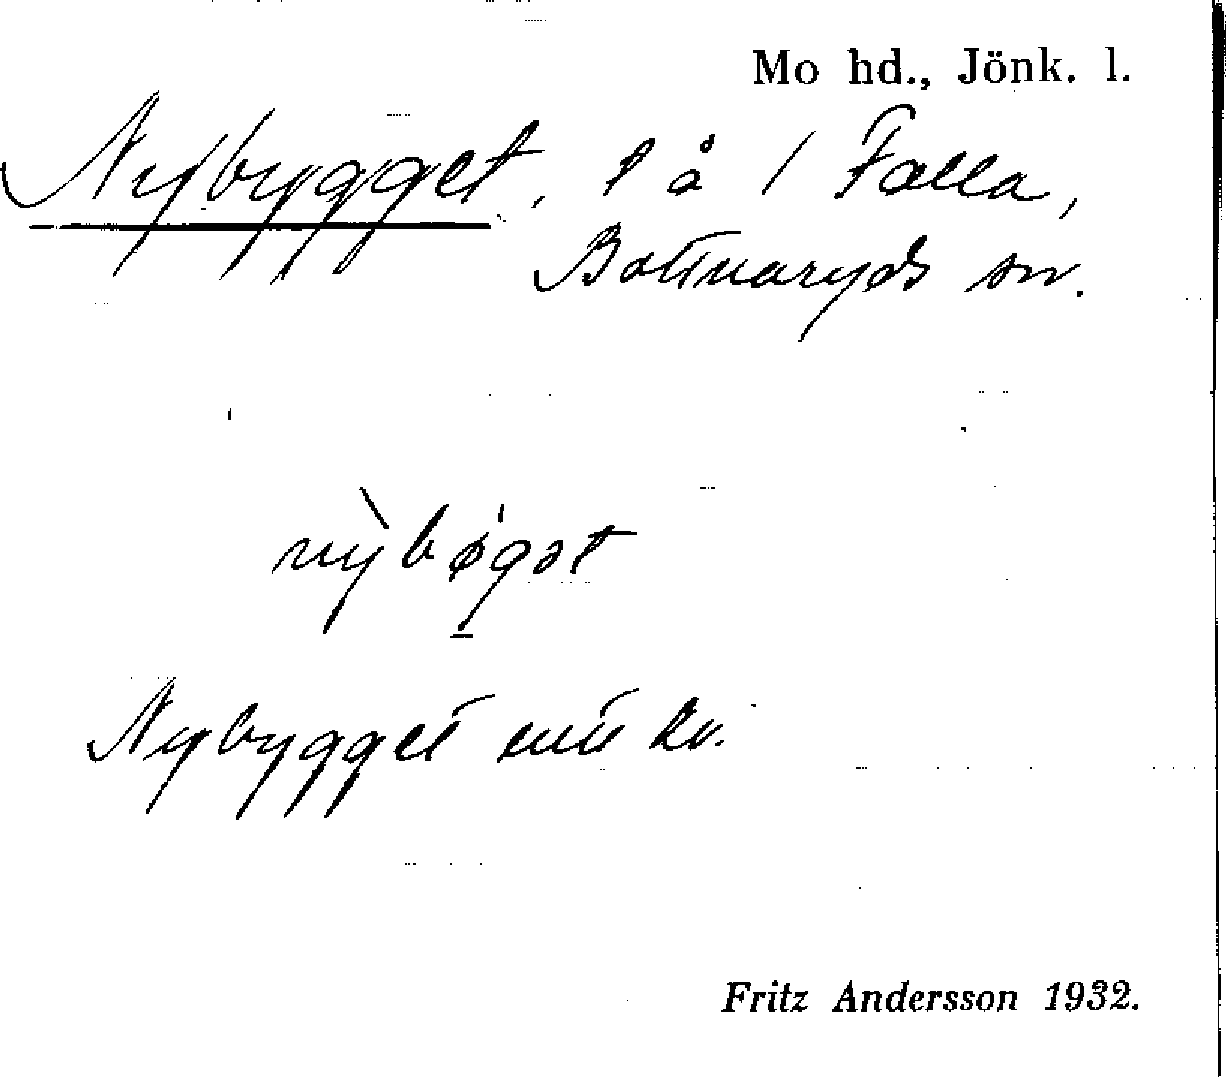 Mo hd., Jönk. l.
Nybygget, t å 1 Falla,
Bottnaryds sn.
nỳbøgət
Nybygget enl kv.
Fritz Andersson 1932.